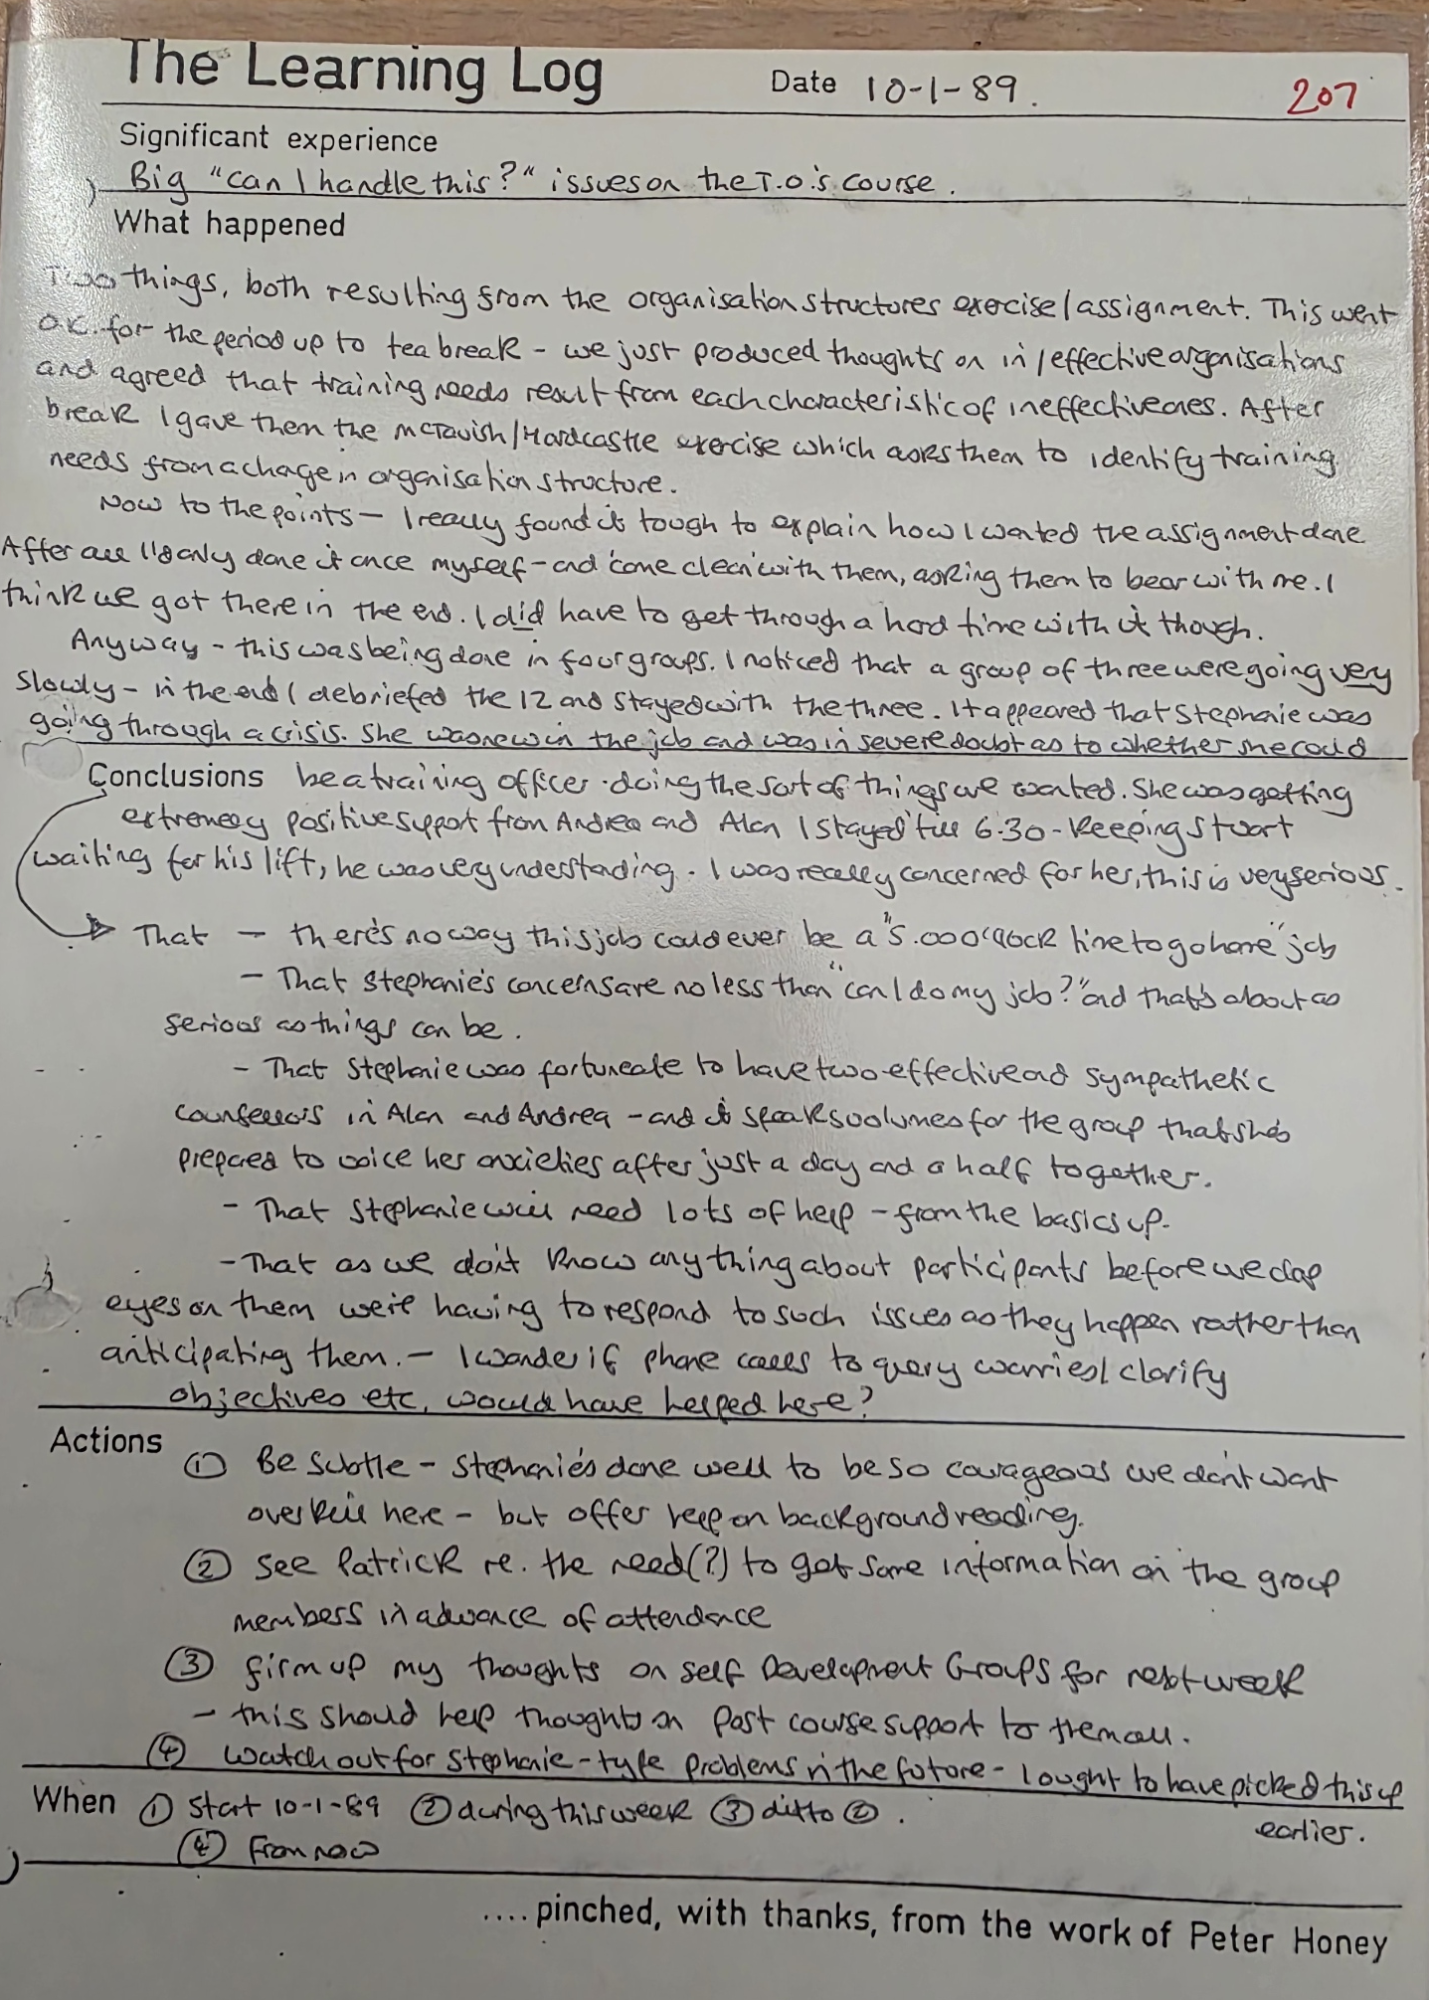 The Learning Log Date 10-1-89. 207
Significant experience
Big "can I handle this?" issues on the T.O.'s course.
What happened
Two things, both resulting from the organisation structures exercise/assignment. This went
O.K. for the period up to tea break - we just produced thoughts on in/effective organisations
and agreed that training needs result from each characteristic of ineffectiveness. After
break I gave them the McTavish/Hardcastle exercise which asks them to identify training
needs from a change in organisation structure.
Now to the points - I really found it tough to explain how I wanted the assignment done
After all I'd only done it once myself - and 'come clean' with them, asking them to bear with me. I
think we got there in the end. I did have to get through a hard time with it though.
Anyway - this was being done in four groups. I noticed that a group of three were going very
slowly - in the end I debriefed the 12 and stayed with the three. It appeared that Stephanie was
going through a crisis. She was new in the job and was in severe doubt as to whether she could
Conclusions be a training officer doing the sort of things we wanted. She was getting
extremely positive support from Andrea and Alan I stayed till 6.30 - keeping Stuart
waiting for his lift, he was very understanding. I was really concerned for her, this is very serious.
That - there's no way this job could ever be a "5.00 o'clock time to go home" job
- That Stephanie's concerns are no less than "can I do my job?" and that's about as
serious as things can be.
- That Stephanie was fortunate to have two effective and sympathetic
counsellors in Alan and Andrea - and it speaks volumes for the group that she's
prepared to voice her anxieties after just a day and a half together.
- That Stephanie will need lots of help - from the basics up.
- That as we don't know anything about participants before we clap
eyes on them we're having to respond to such issues as they happen rather than
anticipating them. - I wonder if phone calls to query worries/clarify
objectives etc, would have helped here?
Actions ① Be subtle - Stephanie's done well to be so courageous we don't want
overkill here - but offer help on background reading.
② See Patrick re. the need(?) to get some information on the group
members in advance of attendance
③ firm up my thoughts on Self Development Groups for next week
- this should help thoughts on post course support to them all.
④ Watch out for Stephanie-type problems in the future - I ought to have picked this up
earlier.
When ① Start 10-1-89 ② during this week ③ ditto ②.
④ From now
.... pinched, with thanks, from the work of Peter Honey